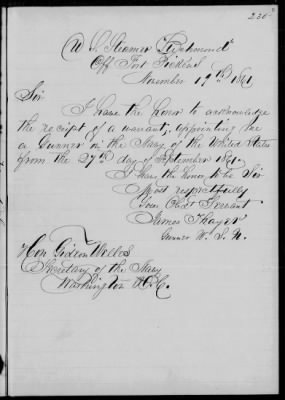 230
U. S. Steamer Richmond
Off Fort Pickens
November 19th 1861
Sir
I have the honor to acknowledge
the receipt of a warrant, appointing me
a Gunner in the Navy of the United States
from the 27th day of September 1861.
I have the honor to be Sir
Most respectfully
Your Obdt Servant
James Thayer
Gunner U. S. N.
Hon Gideon Welles
Secretary of the Navy
Washington D.C.